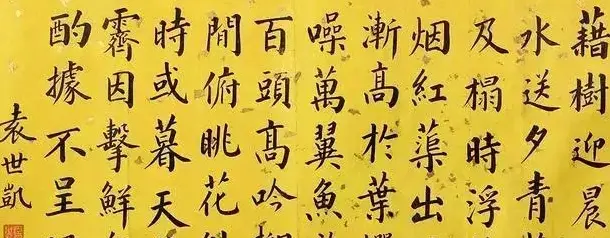 藉樹迎晨
水送夕青
及榻時浮
烟紅蕖出
漸高於葉
噪萬翼魚
百頭高吟
間俯眺花
時或暮天
霽因擊鮮
酌據不呈
袁世凱